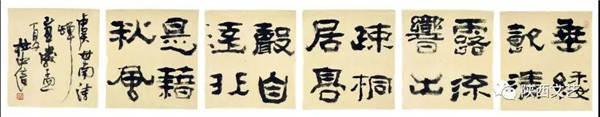 垂緌
飲清
露流
響出
疎桐
居高
聲自
遠非
是藉
秋風
虞世南詩
蟬
陕西文艺